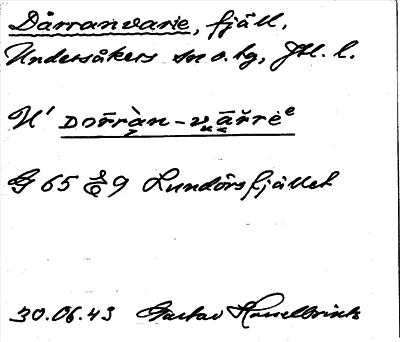 Dårranvarie, fjäll,
Undersåkers sn o. hg, Jtl. l.
U' Dorràn-vārrèe
G 65 S 9 Lundörsfjället
30.06.43 Gustav Hasselbrink